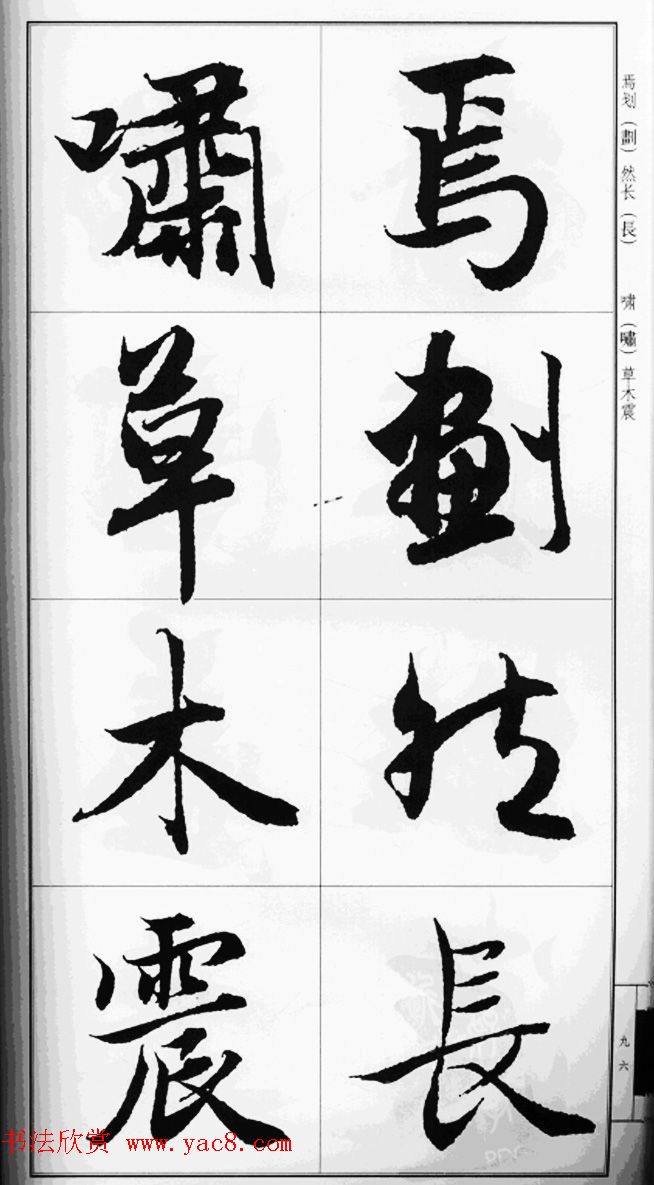 焉劃然長
嘯草木震
焉划（劃）然长（長） 啸（嘯）草木震
九六
书法欣赏 www.yac8.com